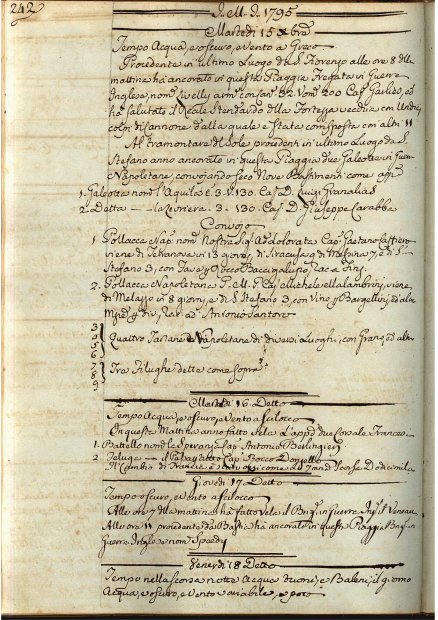 242
J. M. J. 1795
Martedì 15 Xbre
Tempo Acqua, e oscuro, e Vento a Greco
Procedente in ultimo Luogo da S. Fiorenzo alle ore 8 della
mattina ha ancorato in questa Piaggia Fregata in Guerra
Inglese, nom. armi con San 32 Uom. 200 Cap. ed
ha salutato il Reale Stendardo della Fortezza vecchia con Undici
colpi di Cannone dalla quale è stata corrisposta con altri 11
Al tramontare del Sole procedenti in ultimo Luogo da S.
Stefano anno ancorato in questa Piaggia due Galeotte in Guerra
Napoletane, convojando seco Nove Bastimenti come app.
1. Galeotta nom. l'Aquila C. 3. U. 130. Cap. D. Luigi
2. Detta — la Levriera. 3. 130. Cap. D. Giuseppe Carabba
Convojo
1 Pollacca Nap. nom. Nostra Sig. Addolorata Cap. Gaetano Caffiero
viene di Terranova in 13 giorni, di Siracusa 10 Messina 7, e di S.
Stefano 3, con Fava p. Rocco Bacigalupo, Rac. a
2. Pollacca Napoletana G. M. Michele Lambrini, viene
di Melazzo in 8 giorni, e di S. Stefano 3, con Vino p. Bargellini, ed altre
div. Rac. ad Antonio Santoro
3
4
5
6
Quattro Tartane Napoletane di diversi Luoghi, con Grano, ed altro
7
8
9
Tre Filughe dette come sopra
16. Detto
Tempo Acqua, e oscuro, e Vento a Scilocco
In questa Mattina anno fatto Vela l'app. due Francesi
1. Battello nom. la Speranza Cap. Antonio
2. Feluga — il Cap. Rocco
Il Cambio di Francia
Giovedì 17. Detto
Tempo oscuro, e Vento a Scilocco
Alle ore 7 della mattina ha fatto vela il Brig. in Guerra Ing. il
Alle ore 11 procedente da Bastia ha ancorato in questa Piaggia Brig. in
Guerra Inglese nom. Speedy
Venerdì 18 Detto
Tempo nella scorsa notte Acqua, Tuoni, e Baleni, il giorno
Acqua, e oscuro, e Vento variabile, e poco